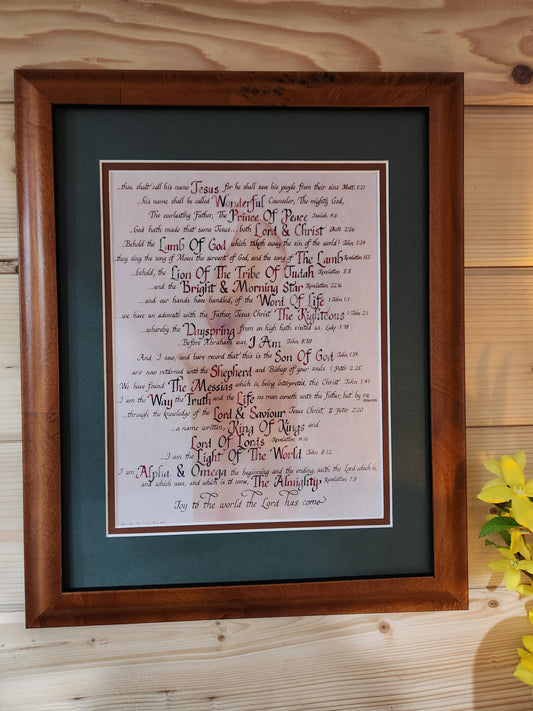 ...thou shalt call his name Jesus for he shall save his people from their sins Matt. 1:21
...his name shall be called Wonderful Counselor, The mighty God,
The everlasting Father, The Prince Of Peace Isaiah 9:6
...God hath made that same Jesus... both Lord & Christ Acts 2:36
...Behold the Lamb Of God which taketh away the sin of the world! John 1:29
...they sing the song of Moses the servant of God, and the song of The Lamb Revelation 15:3
...behold, the Lion Of The Tribe Of Judah Revelation 5:5
...and the Bright & Morning Star Revelation 22:16
...and our hands have handled, of the Word Of Life 1 John 1:1
...we have an advocate with the Father, Jesus Christ The Righteous 1 John 2:1
...whereby the Dayspring from on high hath visited us. Luke 1:78
...Before Abraham was, I Am John 8:58
And I saw, and bare record that this is the Son Of God John 1:34
...are now returned unto the Shepherd and Bishop of your souls 1 Peter 2:25
We have found The Messias which is, being interpreted, the Christ John 1:41
I am the Way the Truth and the Life no man cometh unto the Father, but by me
...through the knowledge of the Lord & Saviour Jesus Christ, II Peter 2:20
...a name written, King Of Kings and
Lord Of Lords Revelation 19:16
...I am the Light Of The World John 8:12
I am Alpha & Omega the beginning and the ending, saith the Lord which is,
and which was, and which is to come, The Almighty Revelation 1:8
Joy to the world the Lord has come